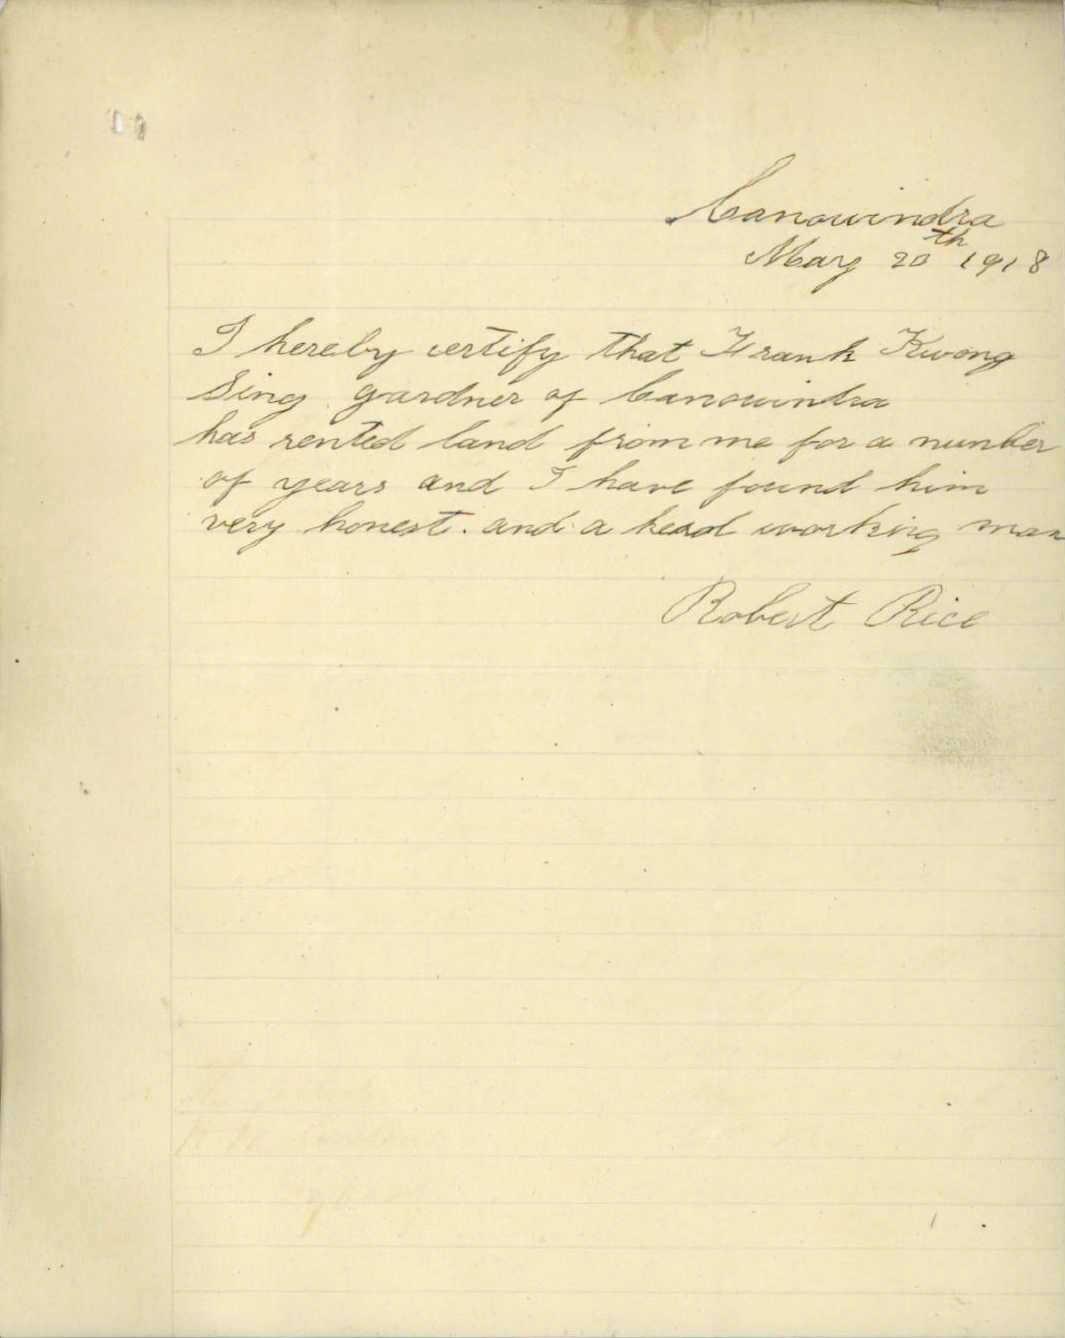 Canowindra
May 20th 1918
I hereby certify that Frank Kwong
Sing gardner of Canowindra
has rented land from me for a number
of years and I have found him
very honest. and a hard working man
Robert Rice